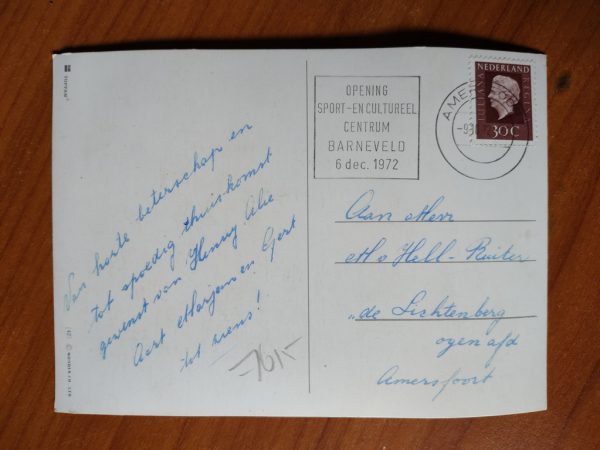 TOPPAN
Van harte beterschap en
tot spoedig thuiskomst
gewenst van Henny Alie
Aart Marjan en Gert
tot ziens!
OPENING
SPORT-EN CULTUREEL
CENTRUM
BARNEVELD
6 dec. 1972
AME
NEDERLAND
JULIANA REGINA
30c
Aan Heer
M v Hell-Ruiter
"de Lichtenberg
ogen afd
Amersfoort